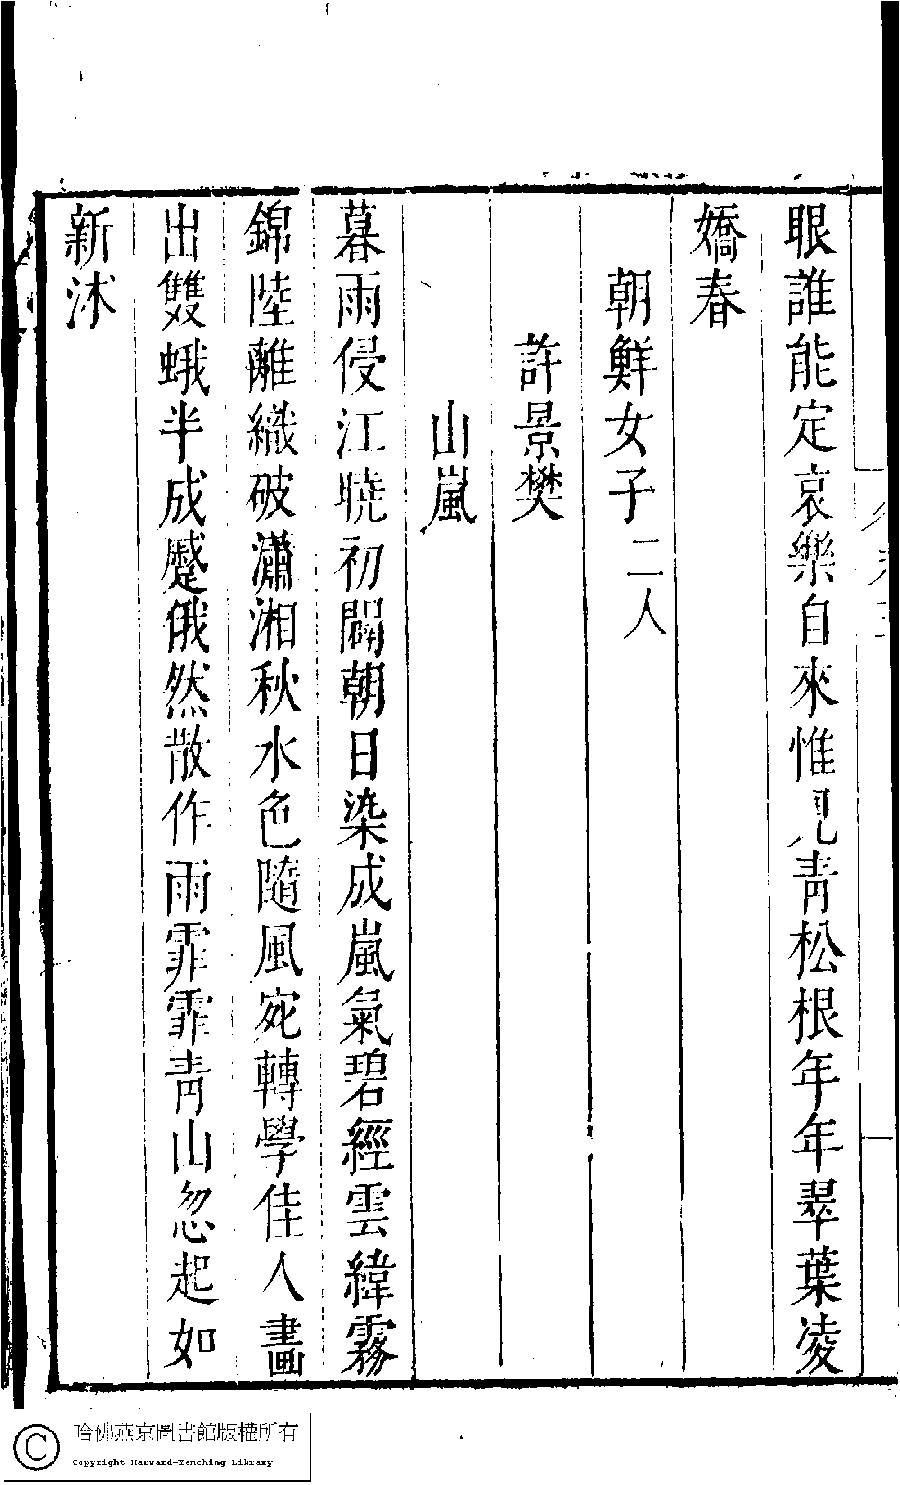 眼誰能定哀樂自來惟見靑松根年年翠葉凌
嬌春
朝鮮女子二人
許景樊
山嵐
暮雨侵江曉初闢朝日染成嵐氣碧經雲緯霧
錦陸離織破瀟湘秋水色隨風宛轉學佳人畫
出雙蛾半成蹙俄然散作雨霏霏靑山忽起如
新沐
哈佛燕京圖書館版權所有
Copyright Harvard-Yenching Library